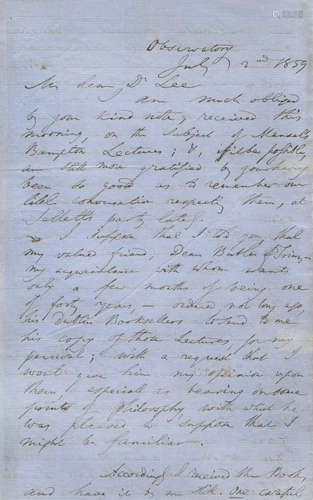 Observatory
July 2nd 1859
My dear Dr Lee
I am much obliged
by your kind note, received this
morning, on the subject of Mansel's
Bampton Lectures; &, still be possible,
am still more gratified by your having
been so good as to remember our
little conversation respecting them, at
party lately.
I suppose that I told you that
my valued friend, Dean Butler of Trim,
my acquaintance with whom wants
only a few months of being one
of forty years, – ordered not long ago,
his Dublin Booksellers to lend to me
his copy of those Lectures for my
perusal; with a request that I
would give him my opinion upon
them, especially as bearing on some
points of Philosophy with which he
was pleased to suppose that I
might be familiar.
Accordingly I received the Book,
and have it by me still. One careful